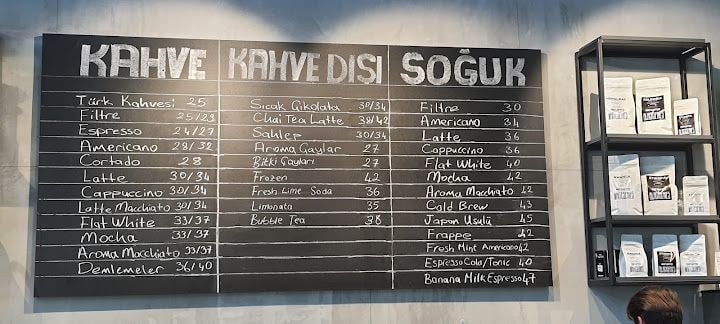 KAHVE
Türk Kahvesi 25
Filtre 25/29
Espresso 24/27
Americano 28/32
Cortado 28
Latte 30/34
Cappuccino 30/34
Latte Macchiato 30/34
Flat White 33/37
Mocha 33/37
Aroma Macchiato 33/37
Demlemeler 36/40
KAHVE DIŞI
Sıcak Çikolata 30/34
Chai Tea Latte 38/42
Sahlep 30/34
Aroma Çaylar 27
Bitki Çayları 27
Frozen 42
Fresh Lime Soda 36
Limonata 35
Bubble Tea 38
SOĞUK
Filtre 30
Americano 34
Latte 36
Cappuccino 36
Flat White 40
Mocha 42
Aroma Macchiato 42
Cold Brew 43
Japon Usulü 45
Frappe 42
Fresh Mint Americano 42
Espresso Cola/Tonic 40
Banana Milk Espresso 47